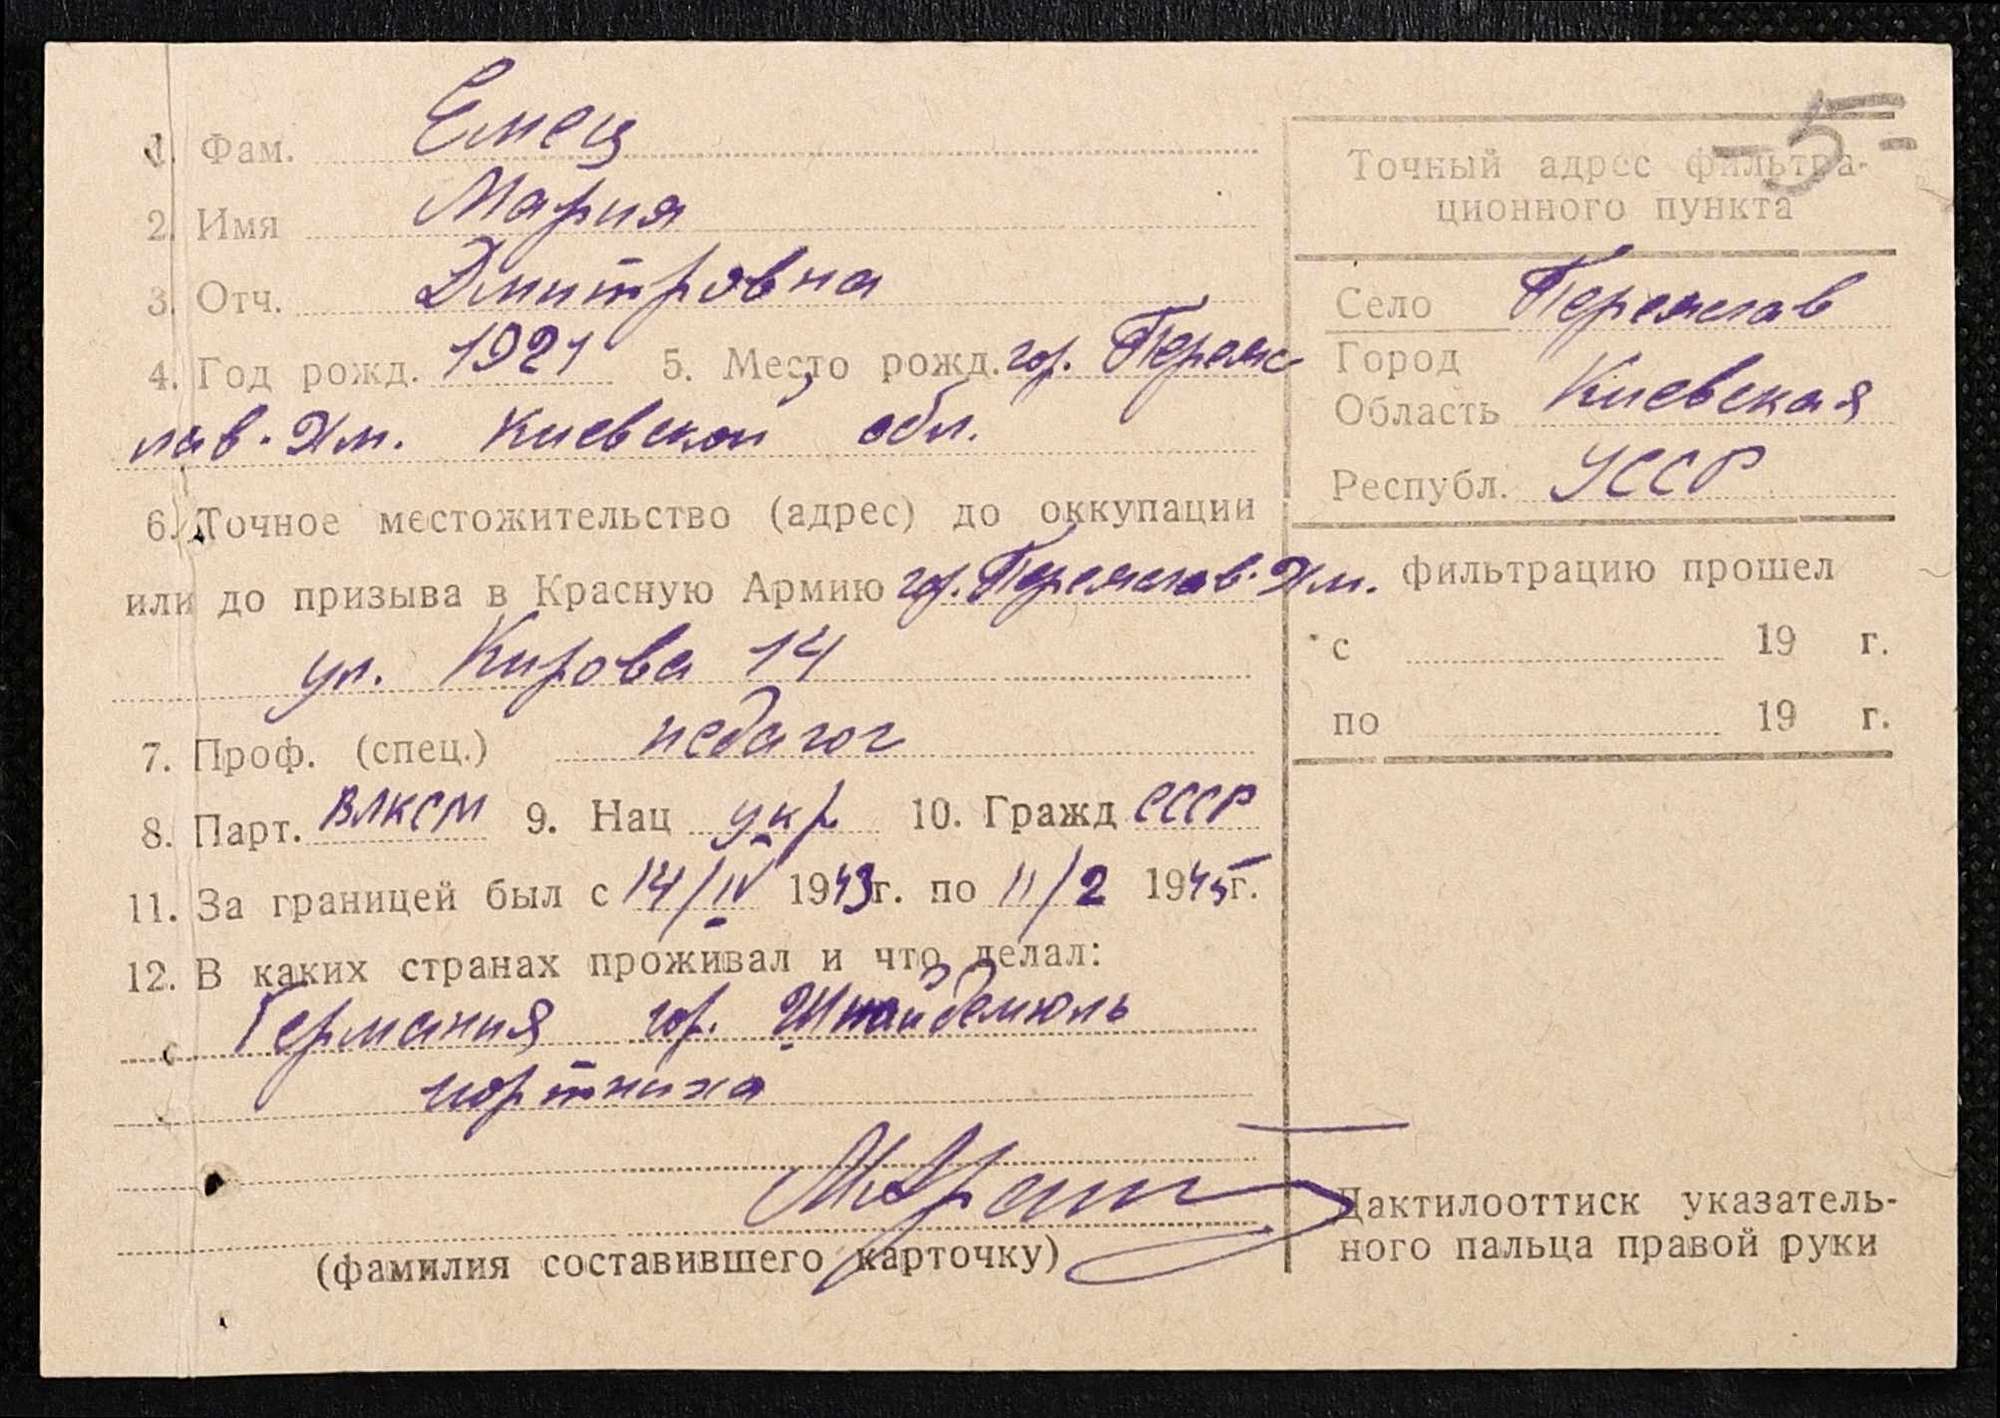 1. Фам. Емец
2. Имя Мария
3. Отч. Дмитровна
4. Год рожд. 1921 5. Место рожд. гор. Переяс
лав-Хм. Киевской обл.
6. Точное местожительство (адрес) до оккупации
или до призыва в Красную Армию гор. Переяслав-Хм.
ул. Кирова 14
7. Проф. (спец.) педагог
8. Парт. ВЛКСМ 9. Нац укр 10. Гражд СССР
11. За границей был с 14/IV 1943г. по 11/2 1945г.
12. В каких странах проживал и что делал:
Германия гор. Шнайдемюль
портниха
(фамилия составившего карточку)
-5-
Точный адрес фильтра-
ционного пункта
Село Переяслав
Город
Область Киевская
Республ. УССР
фильтрацию прошел
с 19 г.
по 19 г.
Дактилооттиск указатель-
ного пальца правой руки